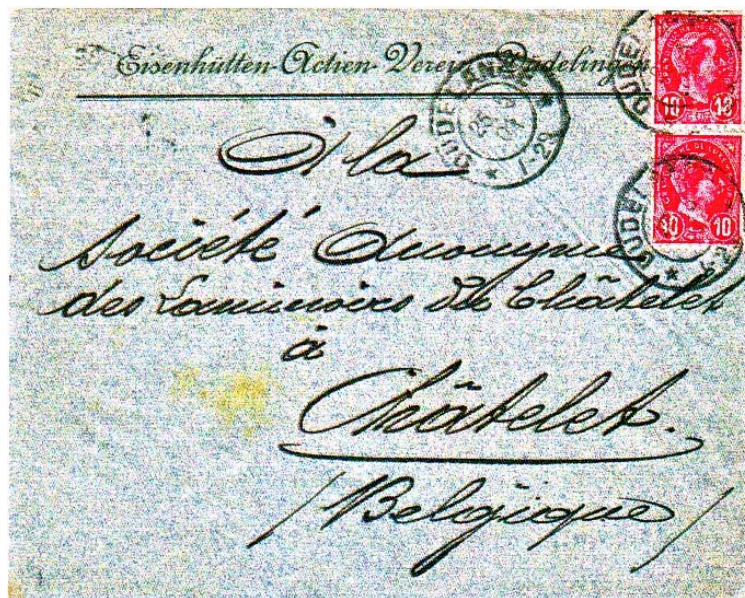 Eisenhütten-Actien-Verein Düdelingen
DUDELANGE
7-29
10 10
10 10
A la
Société Anonyme
des Laminoirs de Châtelet
à
Châtelet.
/Belgique/